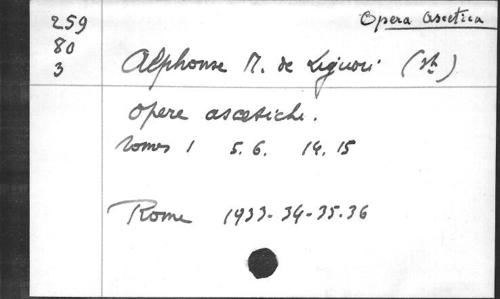 Opera ascetica
259
80
3
Alphonse M. de Liguori (St)
Opere ascetiche.
Tomes 1 5. 6. 14. 15
Rome 1933-34-35.36